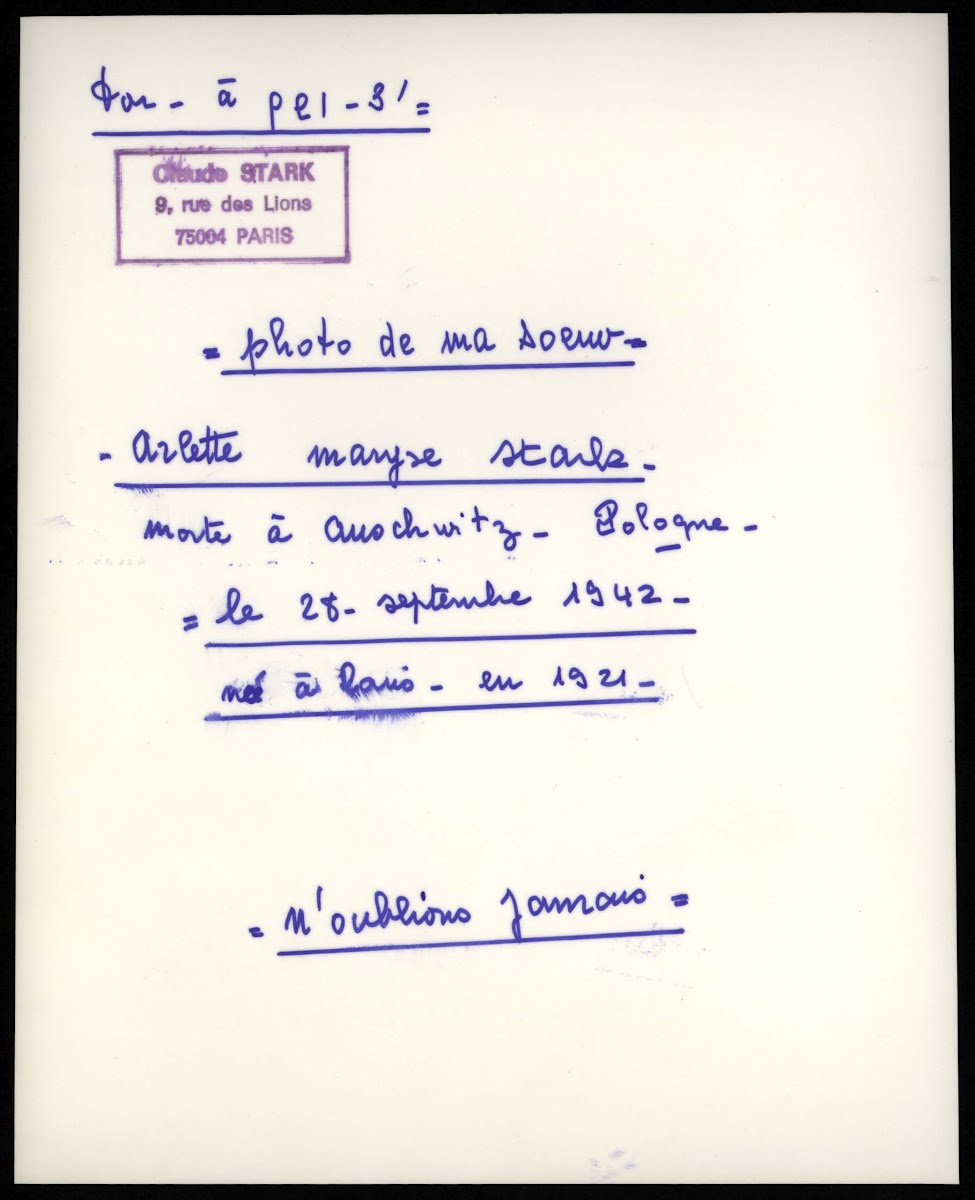 à
Claude STARK
9, rue des Lions
75004 PARIS
= photo de ma soeur =
- Arlette maryse Stark -
morte à Auschwitz - Pologne -
= le 28 - septembre 1942 -
né à Paris - en 1921 -
= N'oublions jamais =